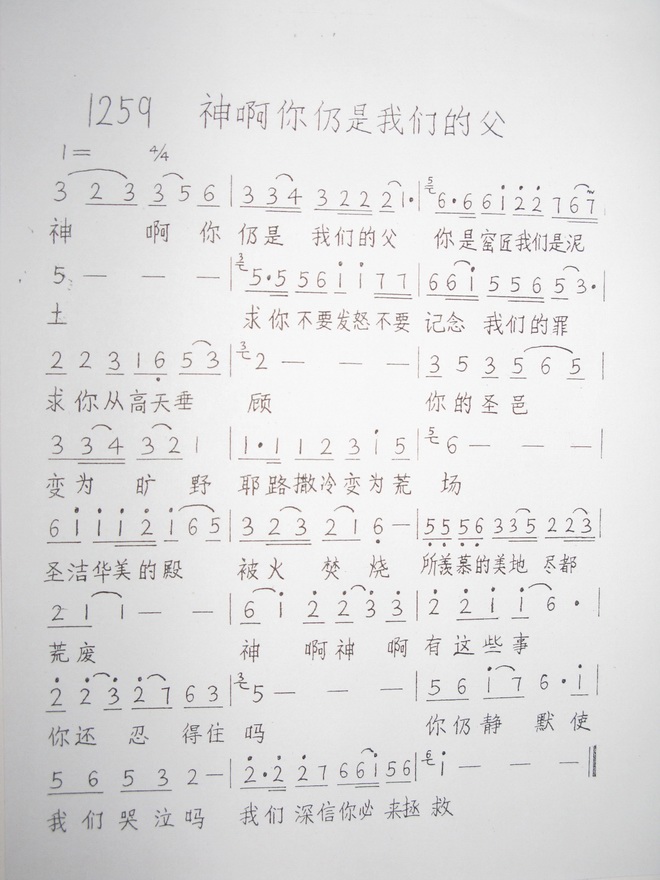 1259 神啊你仍是我们的父
1= 4/4
3 2 3 3 5 6 | 3 3 4 3 2 2 2 1· | 6·6 6 1 2 2 7 6 7 |
神 啊 你 仍是 我们的父 你是窑匠我们是泥
5 — — — | 5·5 5 6 1 1 7 7 | 6 6 1 5 5 6 5 3· |
土 求你不要发怒不要 记念 我们的罪
2 2 3 1 6 5 3 | 2 — — — | 3 5 3 5 6 5 |
求你从高天垂 顾 你的圣邑
3 3 4 3 2 1 | 1·1 1 2 3 1 5 | 6 — — — |
变为 旷 野 耶路撒冷变为荒 场
6 1 1 1 2 1 6 5 | 3 2 3 2 1 6 — | 5 5 5 6 3 3 5 2 2 3 |
圣洁华美的殿 被火 焚 烧 所羡慕的美地 尽都
2 1 1 — — | 6 1 2 2 3 3 | 2 2 1 1 6 · |
荒废 神 啊神 啊 有这些事
2 2 3 2 7 6 3 | 5 — — — | 5 6 1 7 6·1 |
你还 忍 得住 吗 你仍静 默使
5 6 5 3 2 — | 2·2 2 7 6 6 1 5 6 | 1 — — — ‖
我们哭泣吗 我们深信你必来拯救